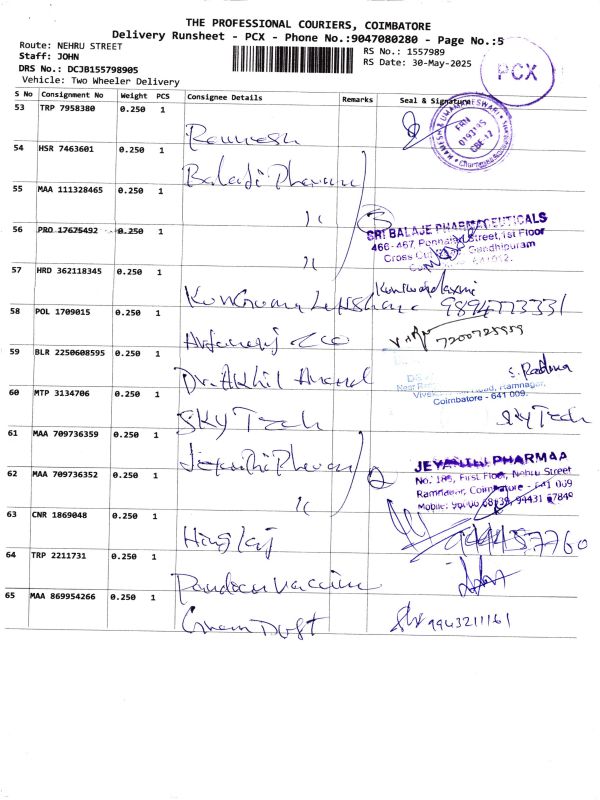 THE PROFESSIONAL COURIERS, COIMBATORE
Delivery Runsheet - PCX - Phone No.:9047080280 - Page No.:5
Route: NEHRU STREET
RS No.: 1557989
Staff: JOHN
RS Date: 30-May-2025
DRS No.: DCJB155798905
Vehicle: Two Wheeler Delivery
PCX
S No Consignment No Weight PCS Consignee Details Remarks Seal & Signature
53 TRP 7958380 0.250 1
Ramesh
54 HSR 7463601 0.250 1
Balaji Pharma
55 MAA 111328465 0.250 1
56 PRO 17675492 0.250 1
SRI BALAJE PHARMACEUTICALS
466-467, Street, 1st Floor
Cross Gandhipuram
57 HRD 362118345 0.250 1
9894773331
58 POL 1709015 0.250 1
7200728959
59 BLR 2250608595 0.250 1
Dr. Akhil Anand
S. Padma
Ramnagar,
Coimbatore - 641 009.
60 MTP 3134706 0.250 1
SKY Tech
SKY Tech
61 MAA 709736359 0.250 1
Jeyanthi Pharma
JEYANTHI PHARMAA
No: 185, First Floor, Nehru Street
Ramnagar, Coimbatore - 641 009
62 MAA 709736352 0.250 1
63 CNR 1869048 0.250 1
64 TRP 2211731 0.250 1
Vaccine
65 MAA 869954266 0.250 1
9943211161